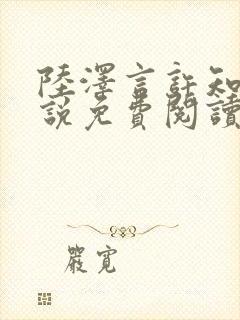 陸澤言許知
說免費閱讀
嚴寬